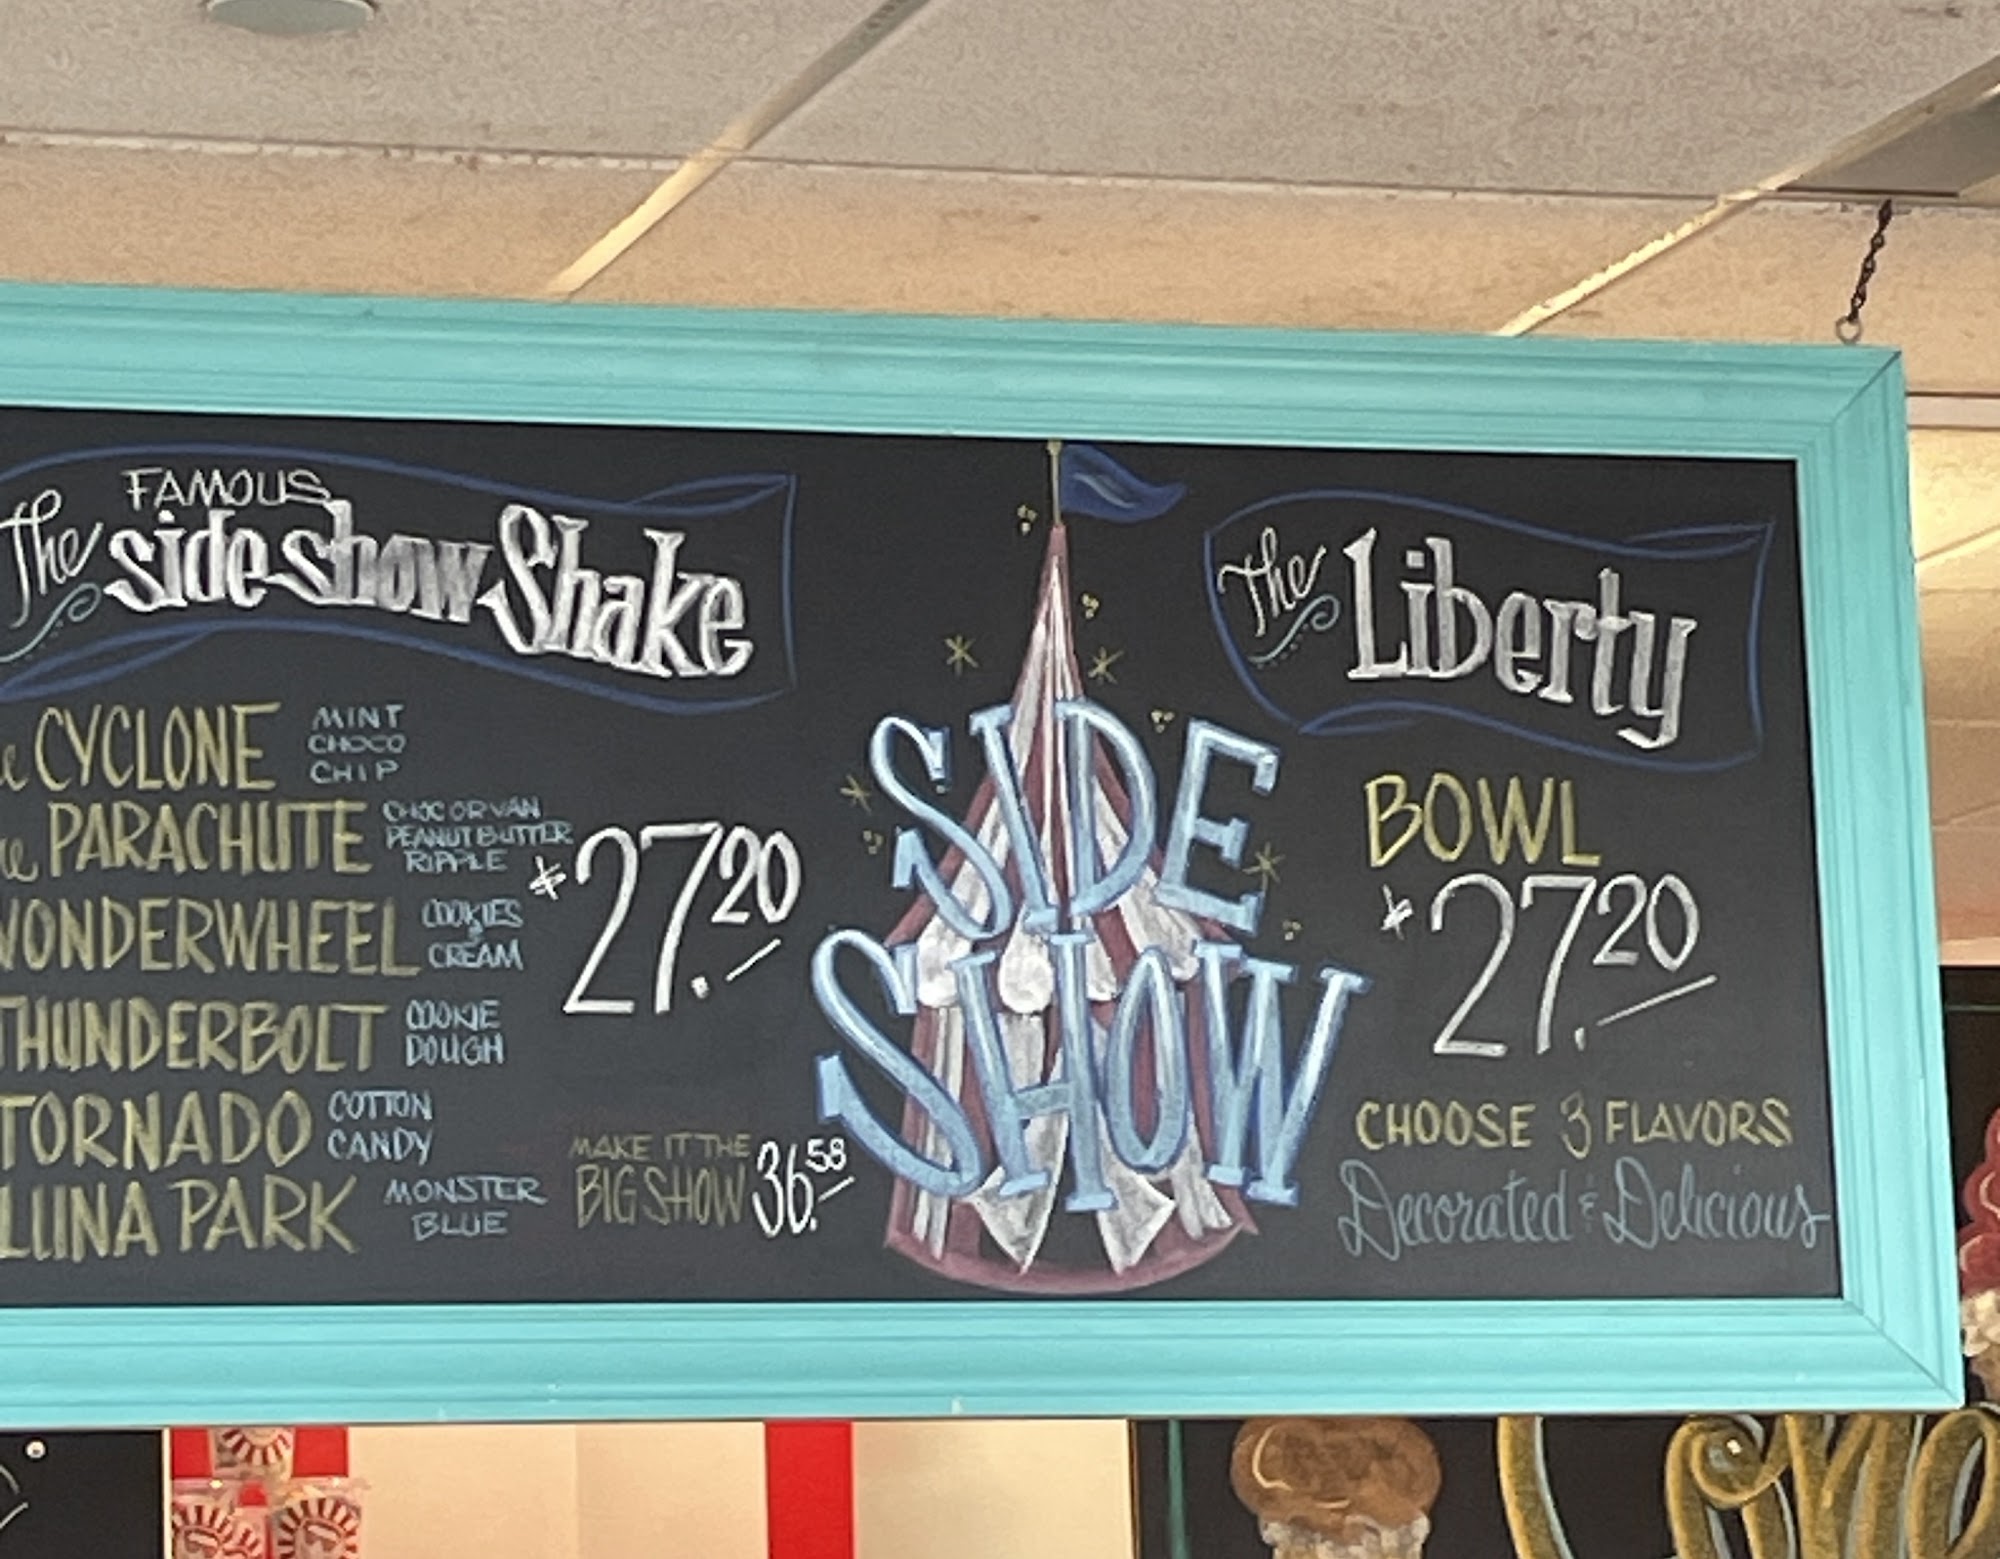 The FAMOUS
side show Shake
CYCLONE MINT CHOCO CHIP
PARACHUTE CHOC OR VAN PEANUT BUTTER RIPPLE
WONDERWHEEL COOKIES & CREAM
THUNDERBOLT COOKIE DOUGH
TORNADO COTTON CANDY
LUNA PARK MONSTER BLUE
$27.20
MAKE IT THE
BIG SHOW 36.58
SIDE
SHOW
The Liberty
BOWL
$27.20
CHOOSE 3 FLAVORS
Decorated & Delicious